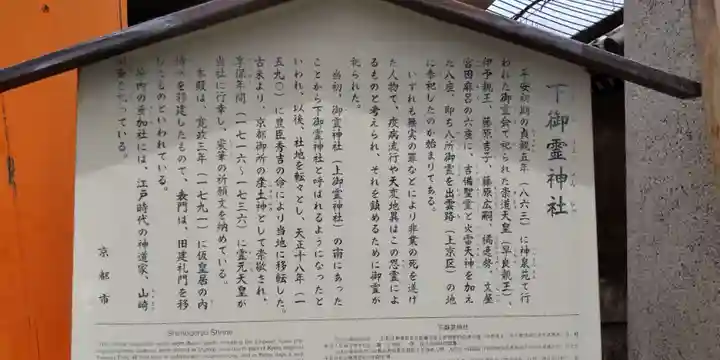 下御霊神社
平安初期の貞観五年(八六三)に神泉苑で行
われた御霊会で祀られた崇道天皇(早良親王)、
伊予親王、藤原吉子、藤原広嗣、橘逸勢、文屋
宮田麻呂の六座に、吉備聖霊と火雷天神を加え
た八座、即ち八所御霊を出雲路(上京区)の地
に奉祀したのが始まりである。
いずれも無実の罪などにより非業の死を遂げ
た人物で、疫病流行や天変地異はこの怨霊によ
るものと考えられ、それを鎮めるために御霊が
祀られた。
当初、御霊神社(上御霊神社)の南にあった
ことから下御霊神社と呼ばれるようになったと
いわれ、以後、社地を転々とし、天正十八年(一
五九〇)に豊臣秀吉の命により当地に移転した。
古来より、京都御所の産土神として崇敬され、
享保年間(一七一六~一七三六)に霊元天皇が
当社に行幸し、宸筆の祈願文を納めている。
本殿は、寛政三年(一七九一)に仮皇居の内
を移建したもので、表門は、旧建礼門を移
したものといわれている。
境内の垂加社には、江戸時代の神道家、山崎
っている。
京都市
Shimogoryo Shrine
下御霊神社